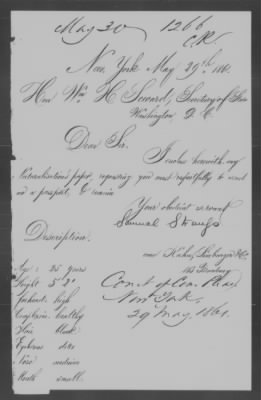 May 30 1266
C.R.
New York May 29th 1861.
Hon Wm. H. Seward, Secretary of State
Washington D. C.
Dear Sir.
I enclose herewith my
Naturalisation paper, requesting you most respectfully to send
me a passport, & remain
Your obedient servant
Samuel Straus
Description.
care Kuhn,
Age: 25 years
Height 5' 2"
Forehead: high
Complexion: healthy
Hair black
Eyebrows ditto
Nose medium
Mouth small.
Court of Com. Pleas
New York.
29 May 1861.